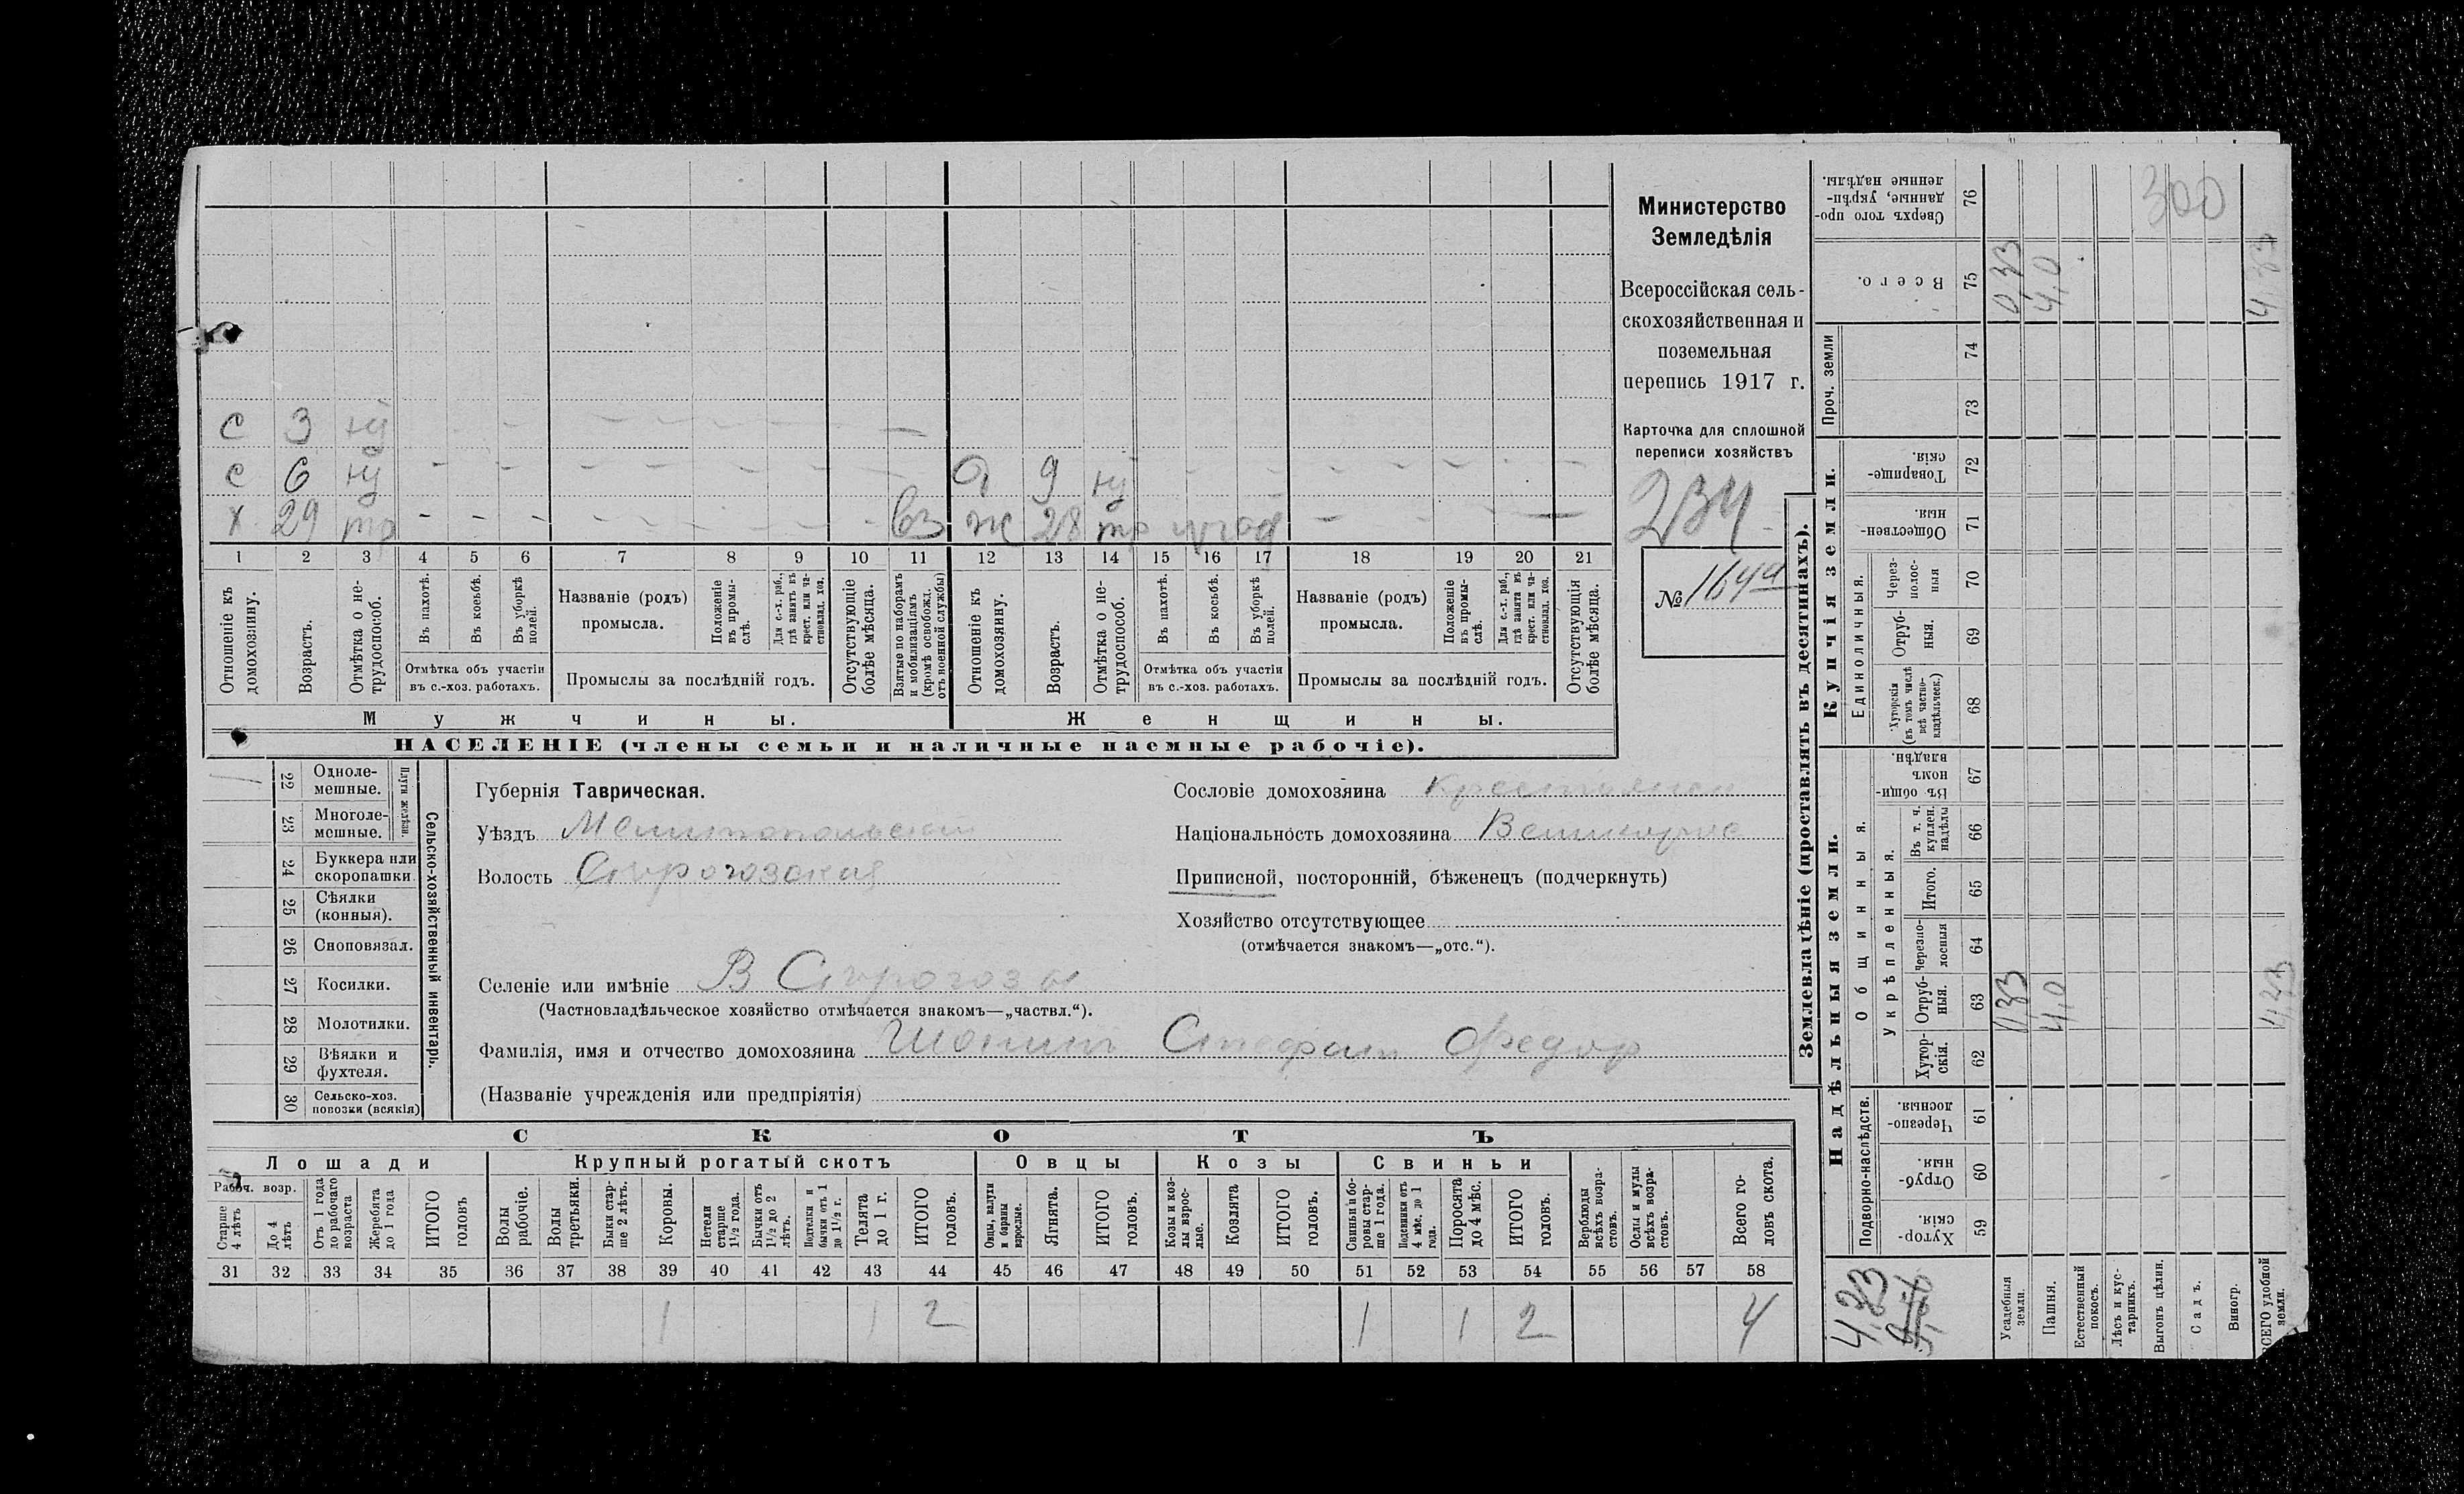 Министерство
Земледѣлія
Всероссійская сель-
скохозяйственная и
поземельная
перепись 1917 г.
Карточка для сплошной
переписи хозяйствъ
234
№ 164а
с 3 ну
с 6 ну д 9 ну
х 29 тр вз ж 28 тр
1 2 3 4 5 6 7 8 9 10 11 12 13 14 15 16 17 18 19 20 21
Отношеніе къ домохозяину.
Возрастъ.
Отмѣтка о не-трудоспособ.
Въ пахотѣ.
Въ косьбѣ.
Въ уборкѣ полей.
Отмѣтка объ участіи
въ с.-хоз. работахъ.
Названіе (родъ)
промысла.
Положеніе въ промы-слѣ.
Для с.-х. раб., гдѣ занятъ въ крест. или ча-стновлад. хоз.
Промыслы за послѣдній годъ.
Отсутствующіе болѣе мѣсяца.
Взятые по наборамъ и мобилизаціямъ (кромѣ освобожд. отъ военной службы)
Отношеніе къ домохозяину.
Возрастъ.
Отмѣтка о не-трудоспособ.
Въ пахотѣ.
Въ косьбѣ.
Въ уборкѣ полей.
Отмѣтка объ участіи
въ с.-хоз. работахъ.
Названіе (родъ)
промысла.
Положеніе въ промы-слѣ.
Для с.-х. раб., гдѣ занята въ крест. или ча-стновлад. хоз.
Промыслы за послѣдній годъ.
Отсутствующія болѣе мѣсяца.
Мужчины. Женщины.
НАСЕЛЕНІЕ (члены семьи и наличные наемные рабочіе).
Сельско-хозяйственный инвентарь.
Плуги желѣзн.
22 Одноле-мешные.
23 Многоле-мешные.
24 Буккера или скоропашки.
25 Сѣялки (конныя).
26 Сноповязал.
27 Косилки.
28 Молотилки.
29 Вѣялки и фухтеля.
30 Сельско-хоз. повозки (всякія)
Губернія Таврическая.
Уѣздъ Мелитопольскій
Волость Сѣрогозская
Сословіе домохозяина Крестьянин
Національность домохозяина Великорус
Приписной, посторонній, бѣженецъ (подчеркнуть)
Хозяйство отсутствующее
(отмѣчается знакомъ—„отс.“).
Селеніе или имѣніе В Сѣрогозы
(Частновладѣльческое хозяйство отмѣчается знакомъ—„частвл.“).
Фамилія, имя и отчество домохозяина Шонин Стефан Федор
(Названіе учрежденія или предпріятія)
СКОТЪ
Лошади Крупный рогатый скотъ Овцы Козы Свиньи
Рабоч. возр.
Старше 4 лѣтъ
До 4 лѣтъ
Отъ 1 года до рабочаго возраста
Жеребята до 1 года
ИТОГО головъ
Волы рабочіе.
Волы третьяки.
Быки стар-ше 2 лѣтъ.
Коровы.
Нетели старше 1½ года.
Бычки отъ 1½ до 2 лѣтъ.
Подтелки и бычки отъ 1 до 1½ г.
Телята до 1 г.
ИТОГО головъ.
Овцы, валухи и бараны взрослые.
Ягнята.
ИТОГО головъ.
Козы и коз-лы взрос-лые.
Козлята
ИТОГО головъ.
Свиньи и бо-ровы стар-ше 1 года.
Подсвинки отъ 4 мѣс. до 1 года.
Поросята до 4 мѣс.
ИТОГО головъ.
Верблюды всѣхъ возра-стовъ.
Ослы и мулы всѣхъ возра-стовъ.
Всего го-ловъ скота.
31 32 33 34 35 36 37 38 39 40 41 42 43 44 45 46 47 48 49 50 51 52 53 54 55 56 57 58
1 1 2 1 1 2 4
Землевладѣніе (проставлять въ десятинахъ).
Надѣльныя земли.
Купчія земли.
Проч. земли
Подворно-наслѣдств.
Общинныя.
Укрѣпленныя.
Единоличныя.
59 Хутор-скія.
60 Отруб-ныя.
61 Черезпо-лосныя.
62 Хутор-скія.
63 Отруб-ныя.
64 Черезпо-лосныя
65 Итого.
66 Въ т. ч. куплен. надѣлы
67 Въ общи-номъ владѣн.
68 Хуторскія (въ томъ числѣ всѣ частно-владѣльческ.)
69 Отруб-ныя.
70 Через-полос-ныя
71 Обществен-ныя.
72 Товарище-скія.
73
74
75 Всего.
76 Сверхъ того про-данные, укрѣп-ленные надѣлы.
4,33
Усадебныя земли. 0,33 0,33
Пашня. 4,0 4,0
Естественный покосъ.
Лѣсъ и кус-тарникъ.
Выгонъ цѣлин. 300
Садъ.
Виногр.
ВСЕГО удобной земли. 4,33 4,33